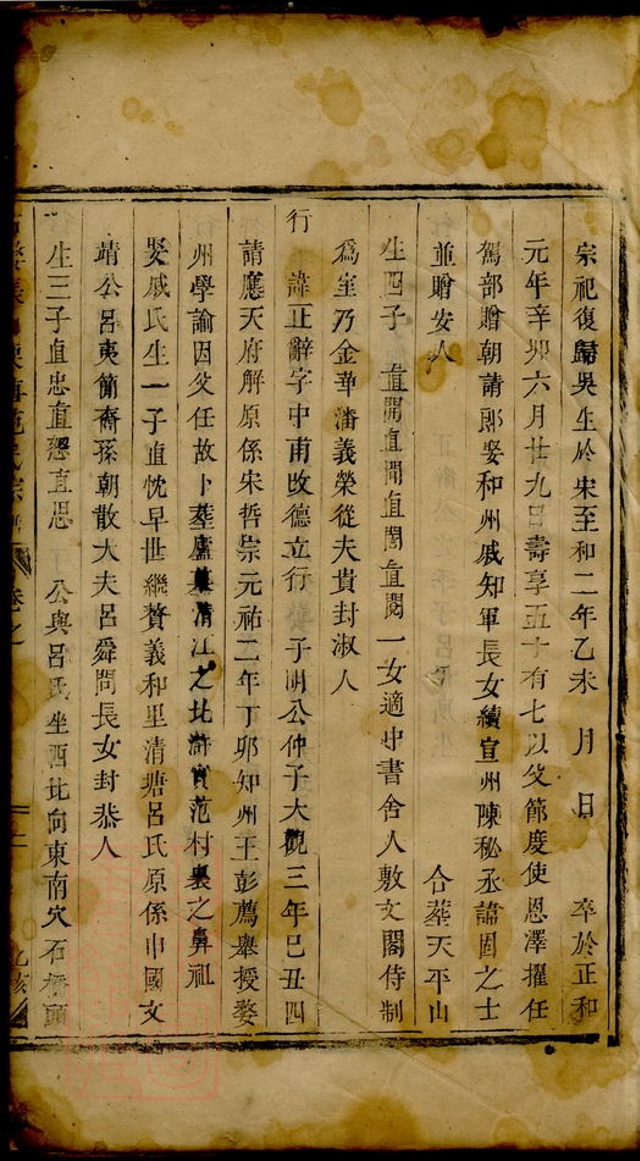 宗祀復歸吳生於宋至和二年乙未 月 日 卒於正和
元年辛卯六月廿九日壽享五十有七以父節度使恩澤擢任
駕部贈朝請郎娶和州戚知軍長女續宣州陳秘丞諱固之士
並贈安人 合葬天平山
生四子 直開直閒直閏直閱一女適中書舍人敷文閣侍制
爲室乃金華潘義榮從夫貴封淑人
行 諱正辭字中甫改德立行 子明公仲子大觀三年己丑四
請應天府解原係宋哲宗元祐二年丁卯知州王彭薦舉授婺
州學諭因父任故卜葬廬墓清江之北滸實范村裏之鼻祖
娶戚氏生一子直忱早世繼贅義和里清塘呂氏原係中國文
靖公呂夷簡裔孫朝散大夫呂舜問長女封恭人
生三子直忠直恕直思 公與呂氏坐西北向東南穴石橋頭
范氏宗 卷之 乙亥